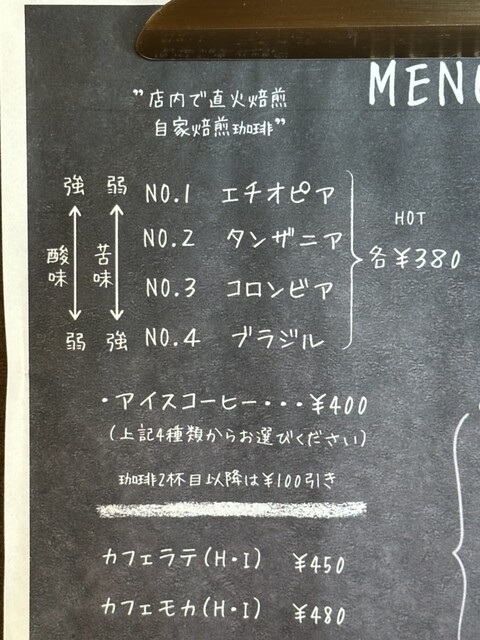 MENU
”店内で直火焙煎
自家焙煎珈琲”
強 弱 NO.1 エチオピア
HOT
NO.2 タンザニア
酸味 苦味 各¥380
NO.3 コロンビア
弱 強 NO.4 ブラジル
・アイスコーヒー・・・¥400
(上記4種類からお選びください)
珈琲2杯目以降は¥100引き
カフェラテ(H・I) ¥450
カフェモカ(H・I) ¥480